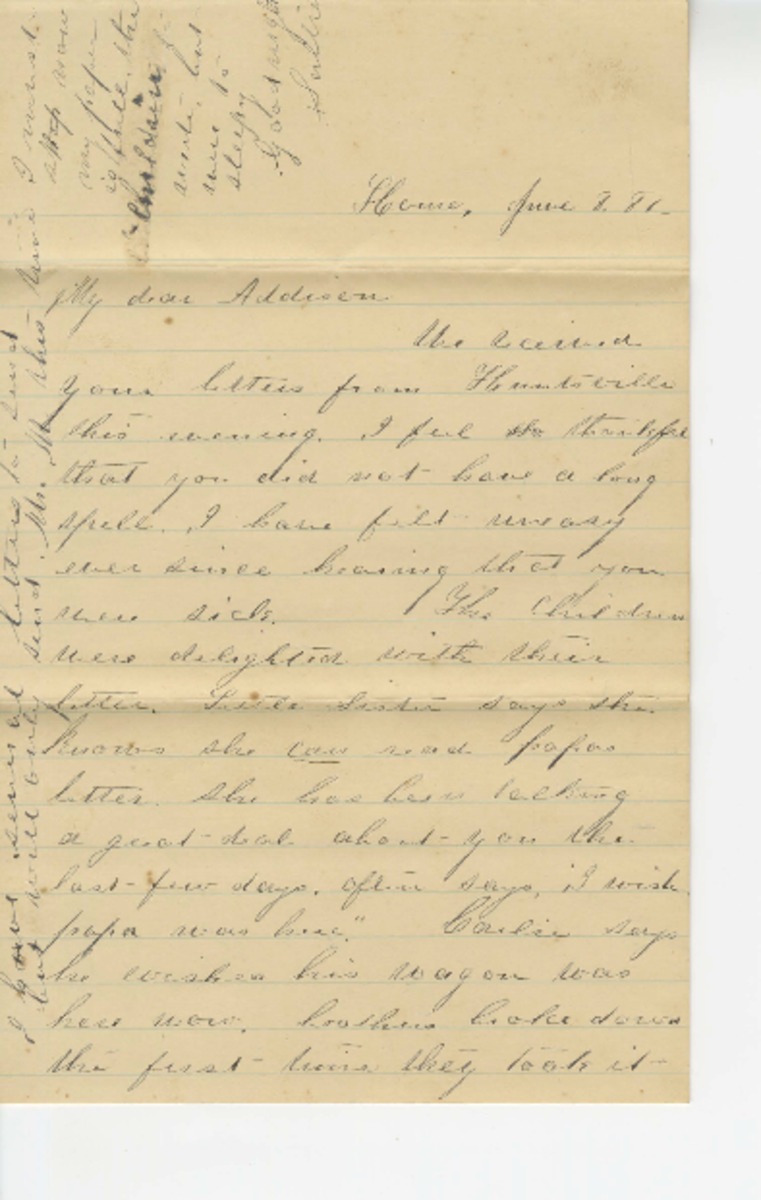 Home, June 8. 81.
My dear Addison
We recieved
your letters from Huntsville
this evening. I feel so thankful
that you did not have a long
spell. I have felt uneasy
ever since hearing that you
were sick. The Children
were delighted with their
letter. Little Sister says she
knows she can read papas
letter. She has been talking
a great deal about you the
last few days. often says, "I wish
papa was here". says
he wishes his wagon was
here now. brothers broke down
the first time they took it
I have several letters to send
but will only send Mr. this time I must
stop now
my paper
is full. the
children
write, but
were to
sleepy
Goodnight
Sallie